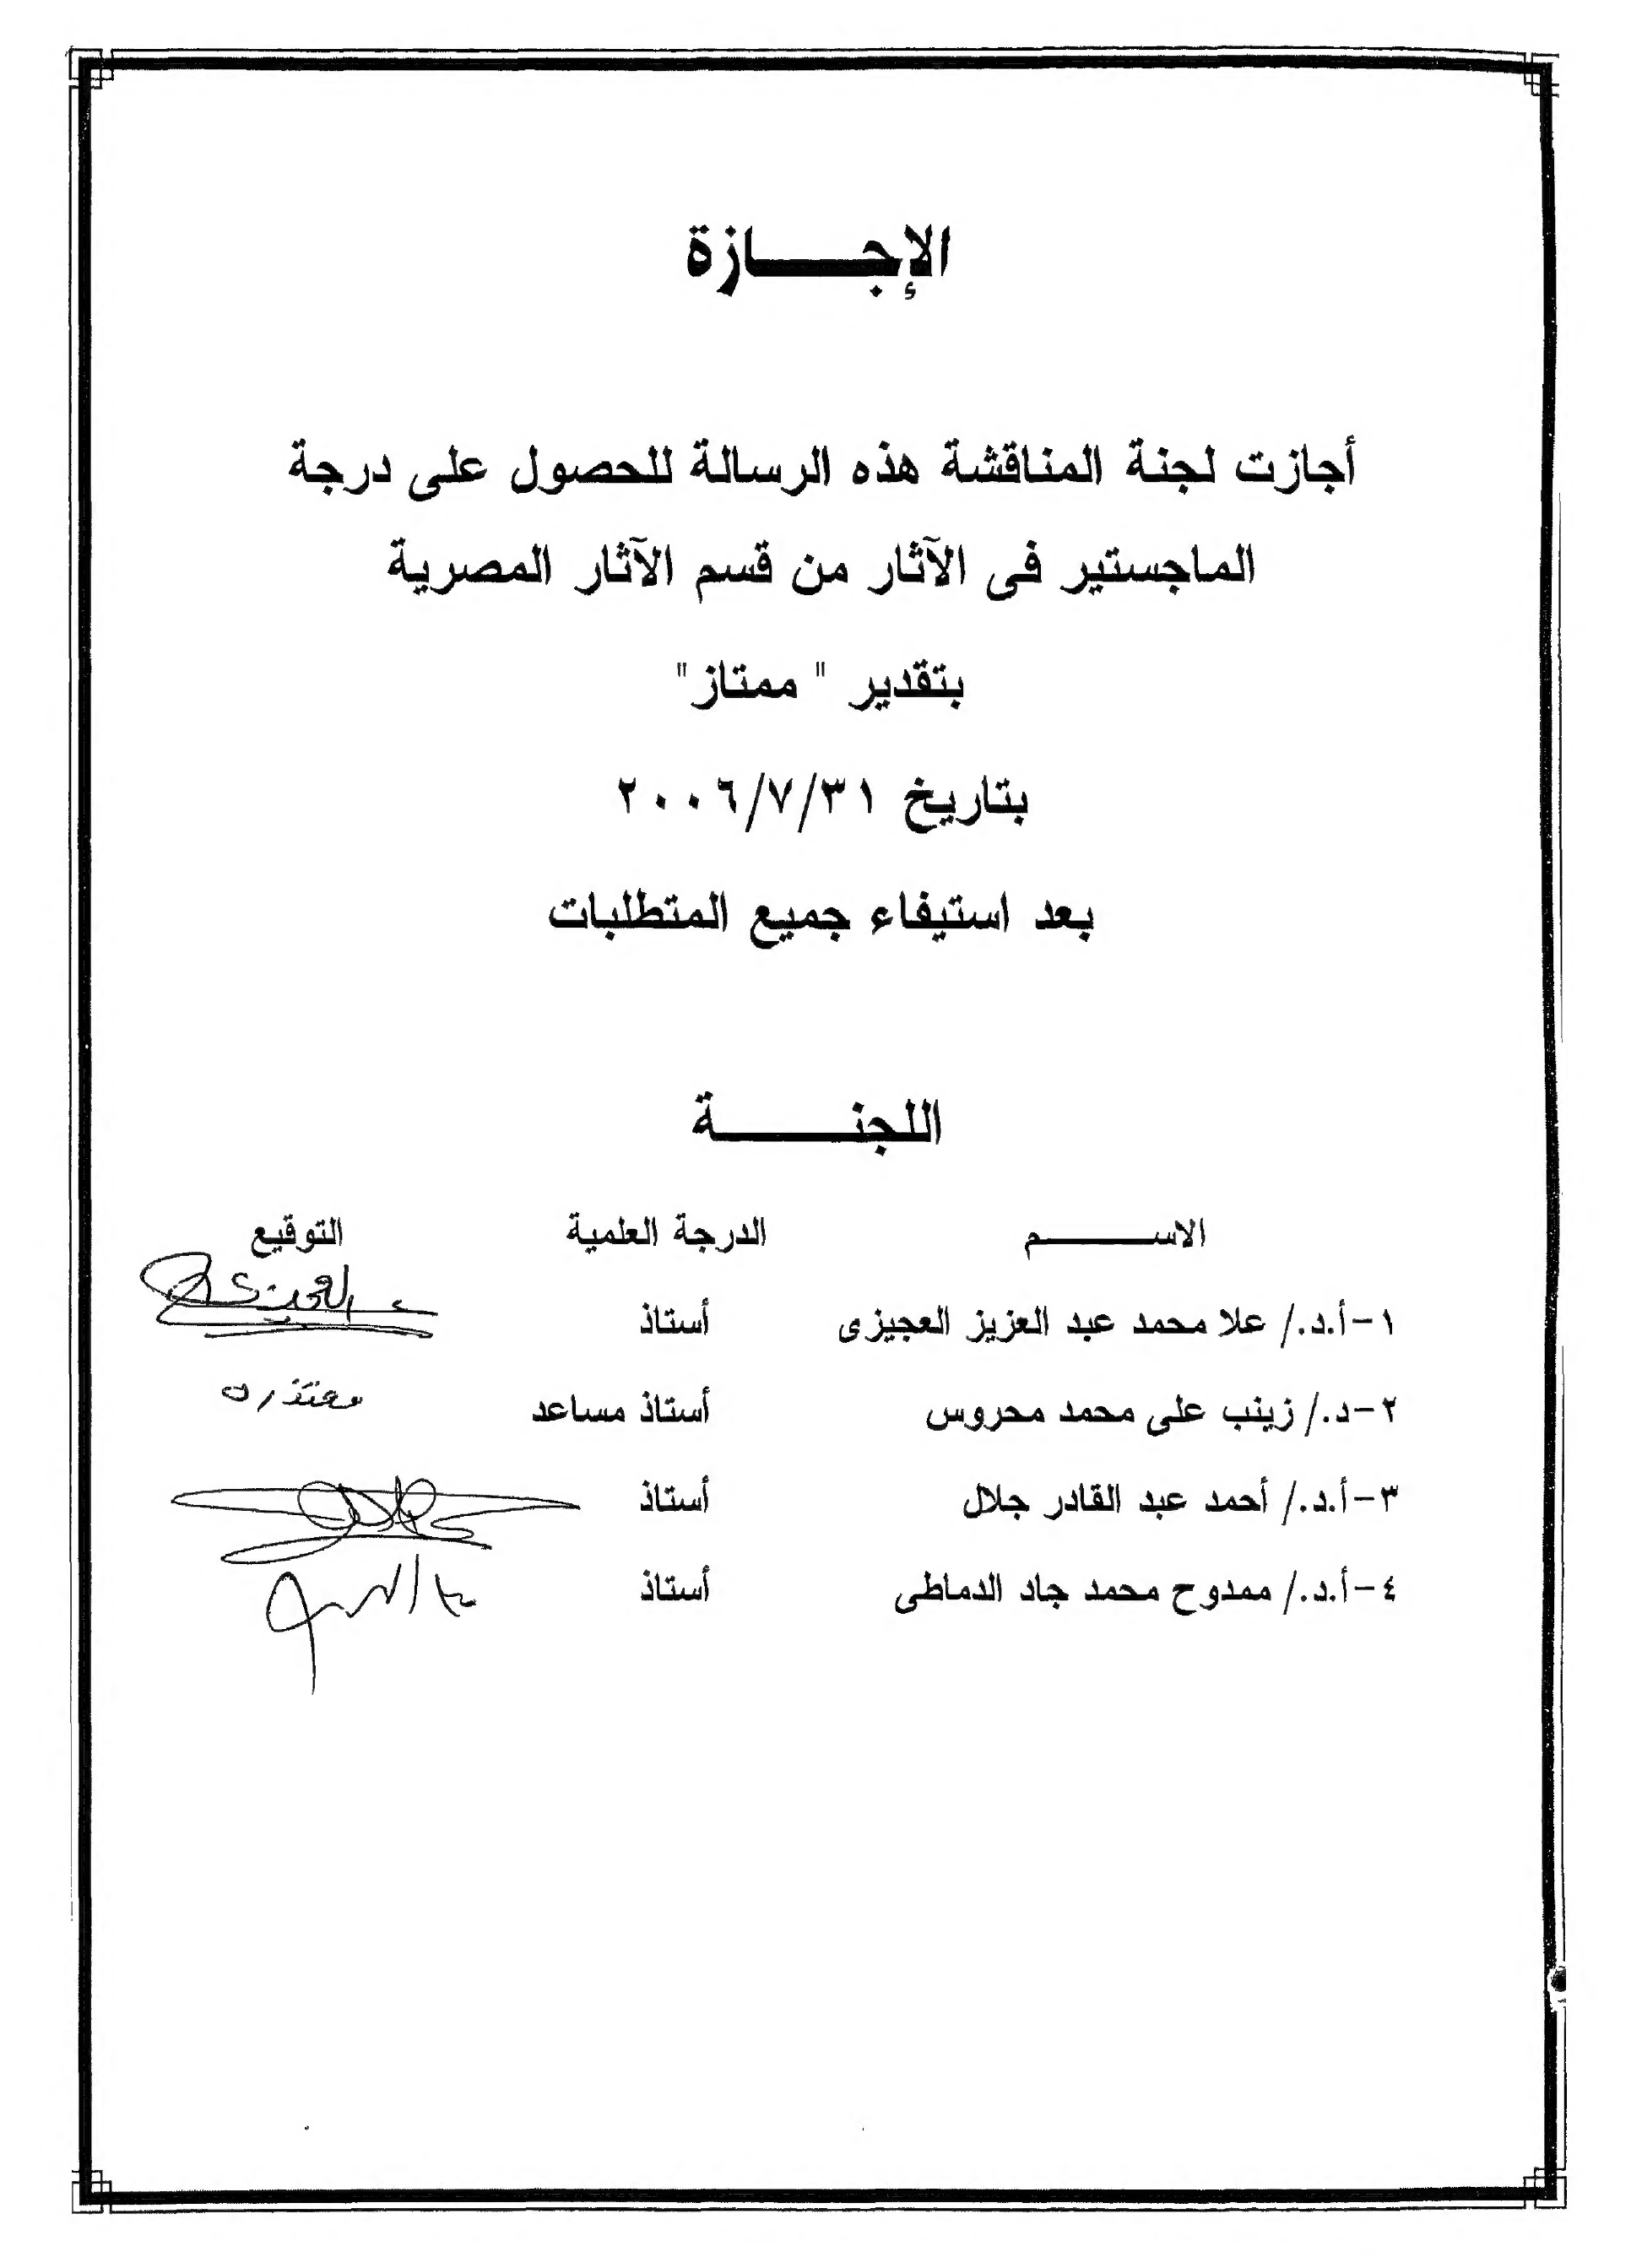 الإجـــــازة
أجازت لجنة المناقشة هذه الرسالة للحصول على درجة
الماجستير فى الآثار من قسم الآثار المصرية
بتقدير " ممتاز"
بتاريخ ٢٠٠٦/٧/٣١
بعد استيفاء جميع المتطلبات
اللجنـــــــة
الاســــــــم الدرجة العلمية التوقيع
١-أ.د./ علا محمد عبد العزيز العجيزى أستاذ
٢-د./ زينب على محمد محروس أستاذ مساعد
٣-أ.د./ أحمد عبد القادر جلال أستاذ
٤-أ.د./ ممدوح محمد جاد الدماطى أستاذ